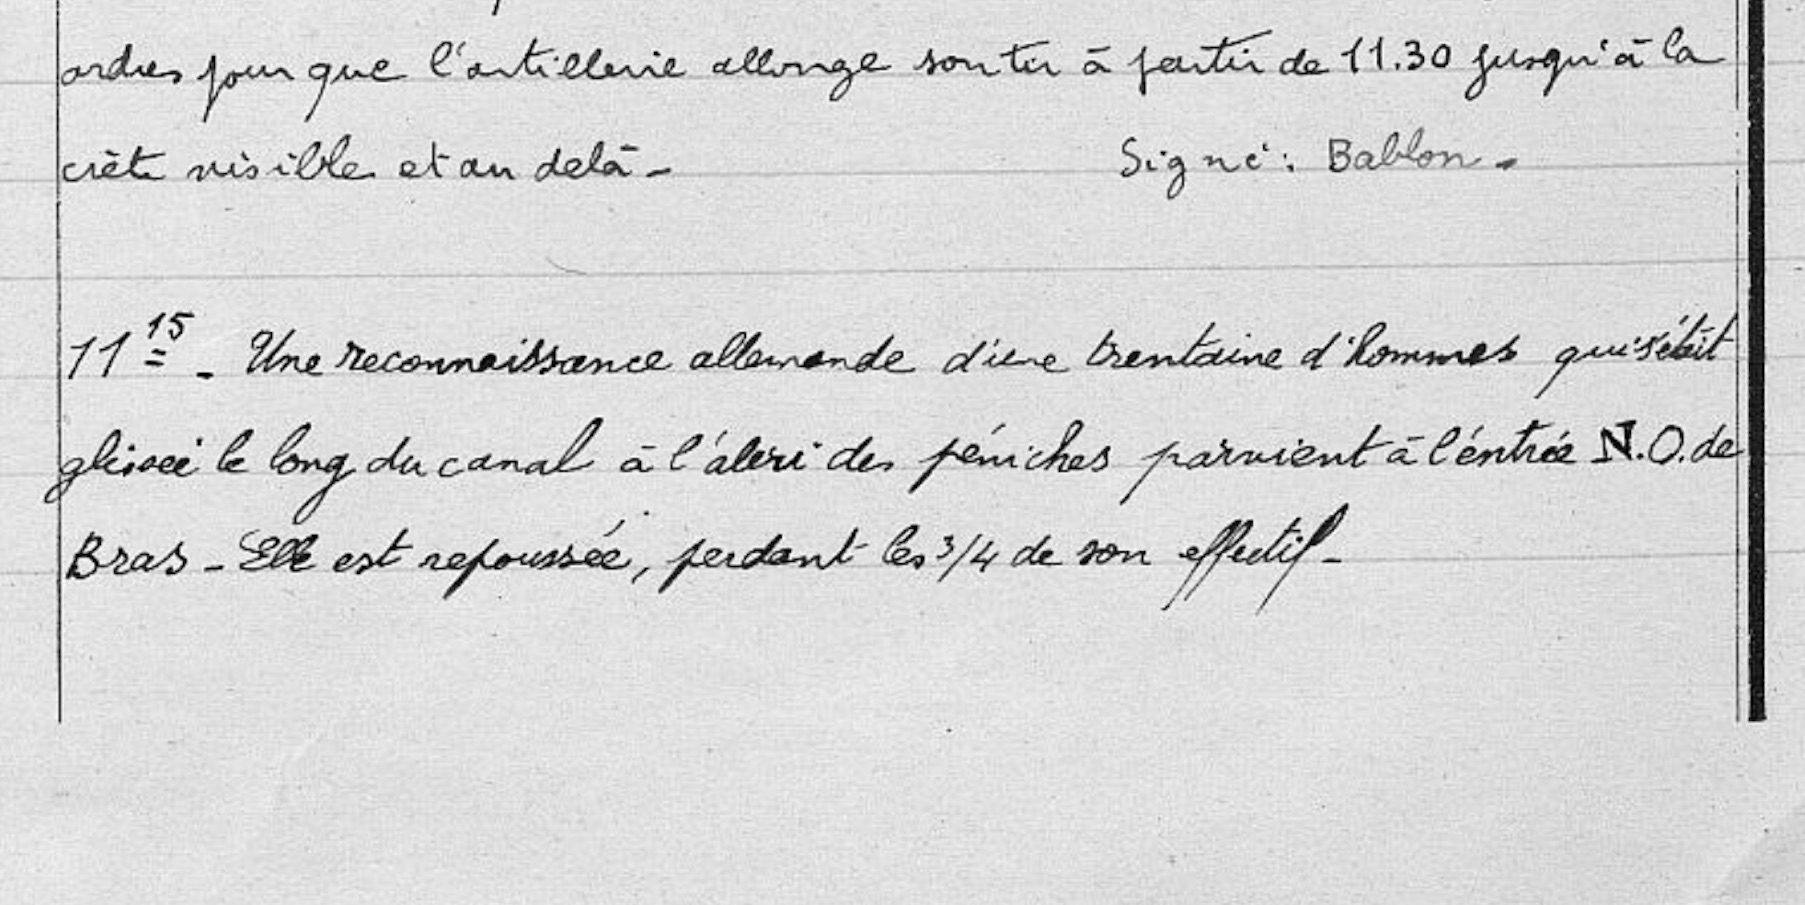 ordres pour que l'artillerie allonge son tir à partir de 11.30 jusqu'à la
crête visible et au delà -
Signé : Bablon -
11 15 - Une reconnaissance allemande d'une trentaine d'hommes qui s'était
glissée le long du canal à l'abri des péniches parvient à l'entrée N.O. de
Bras - Elle est repoussée, perdant les 3/4 de son effectif -